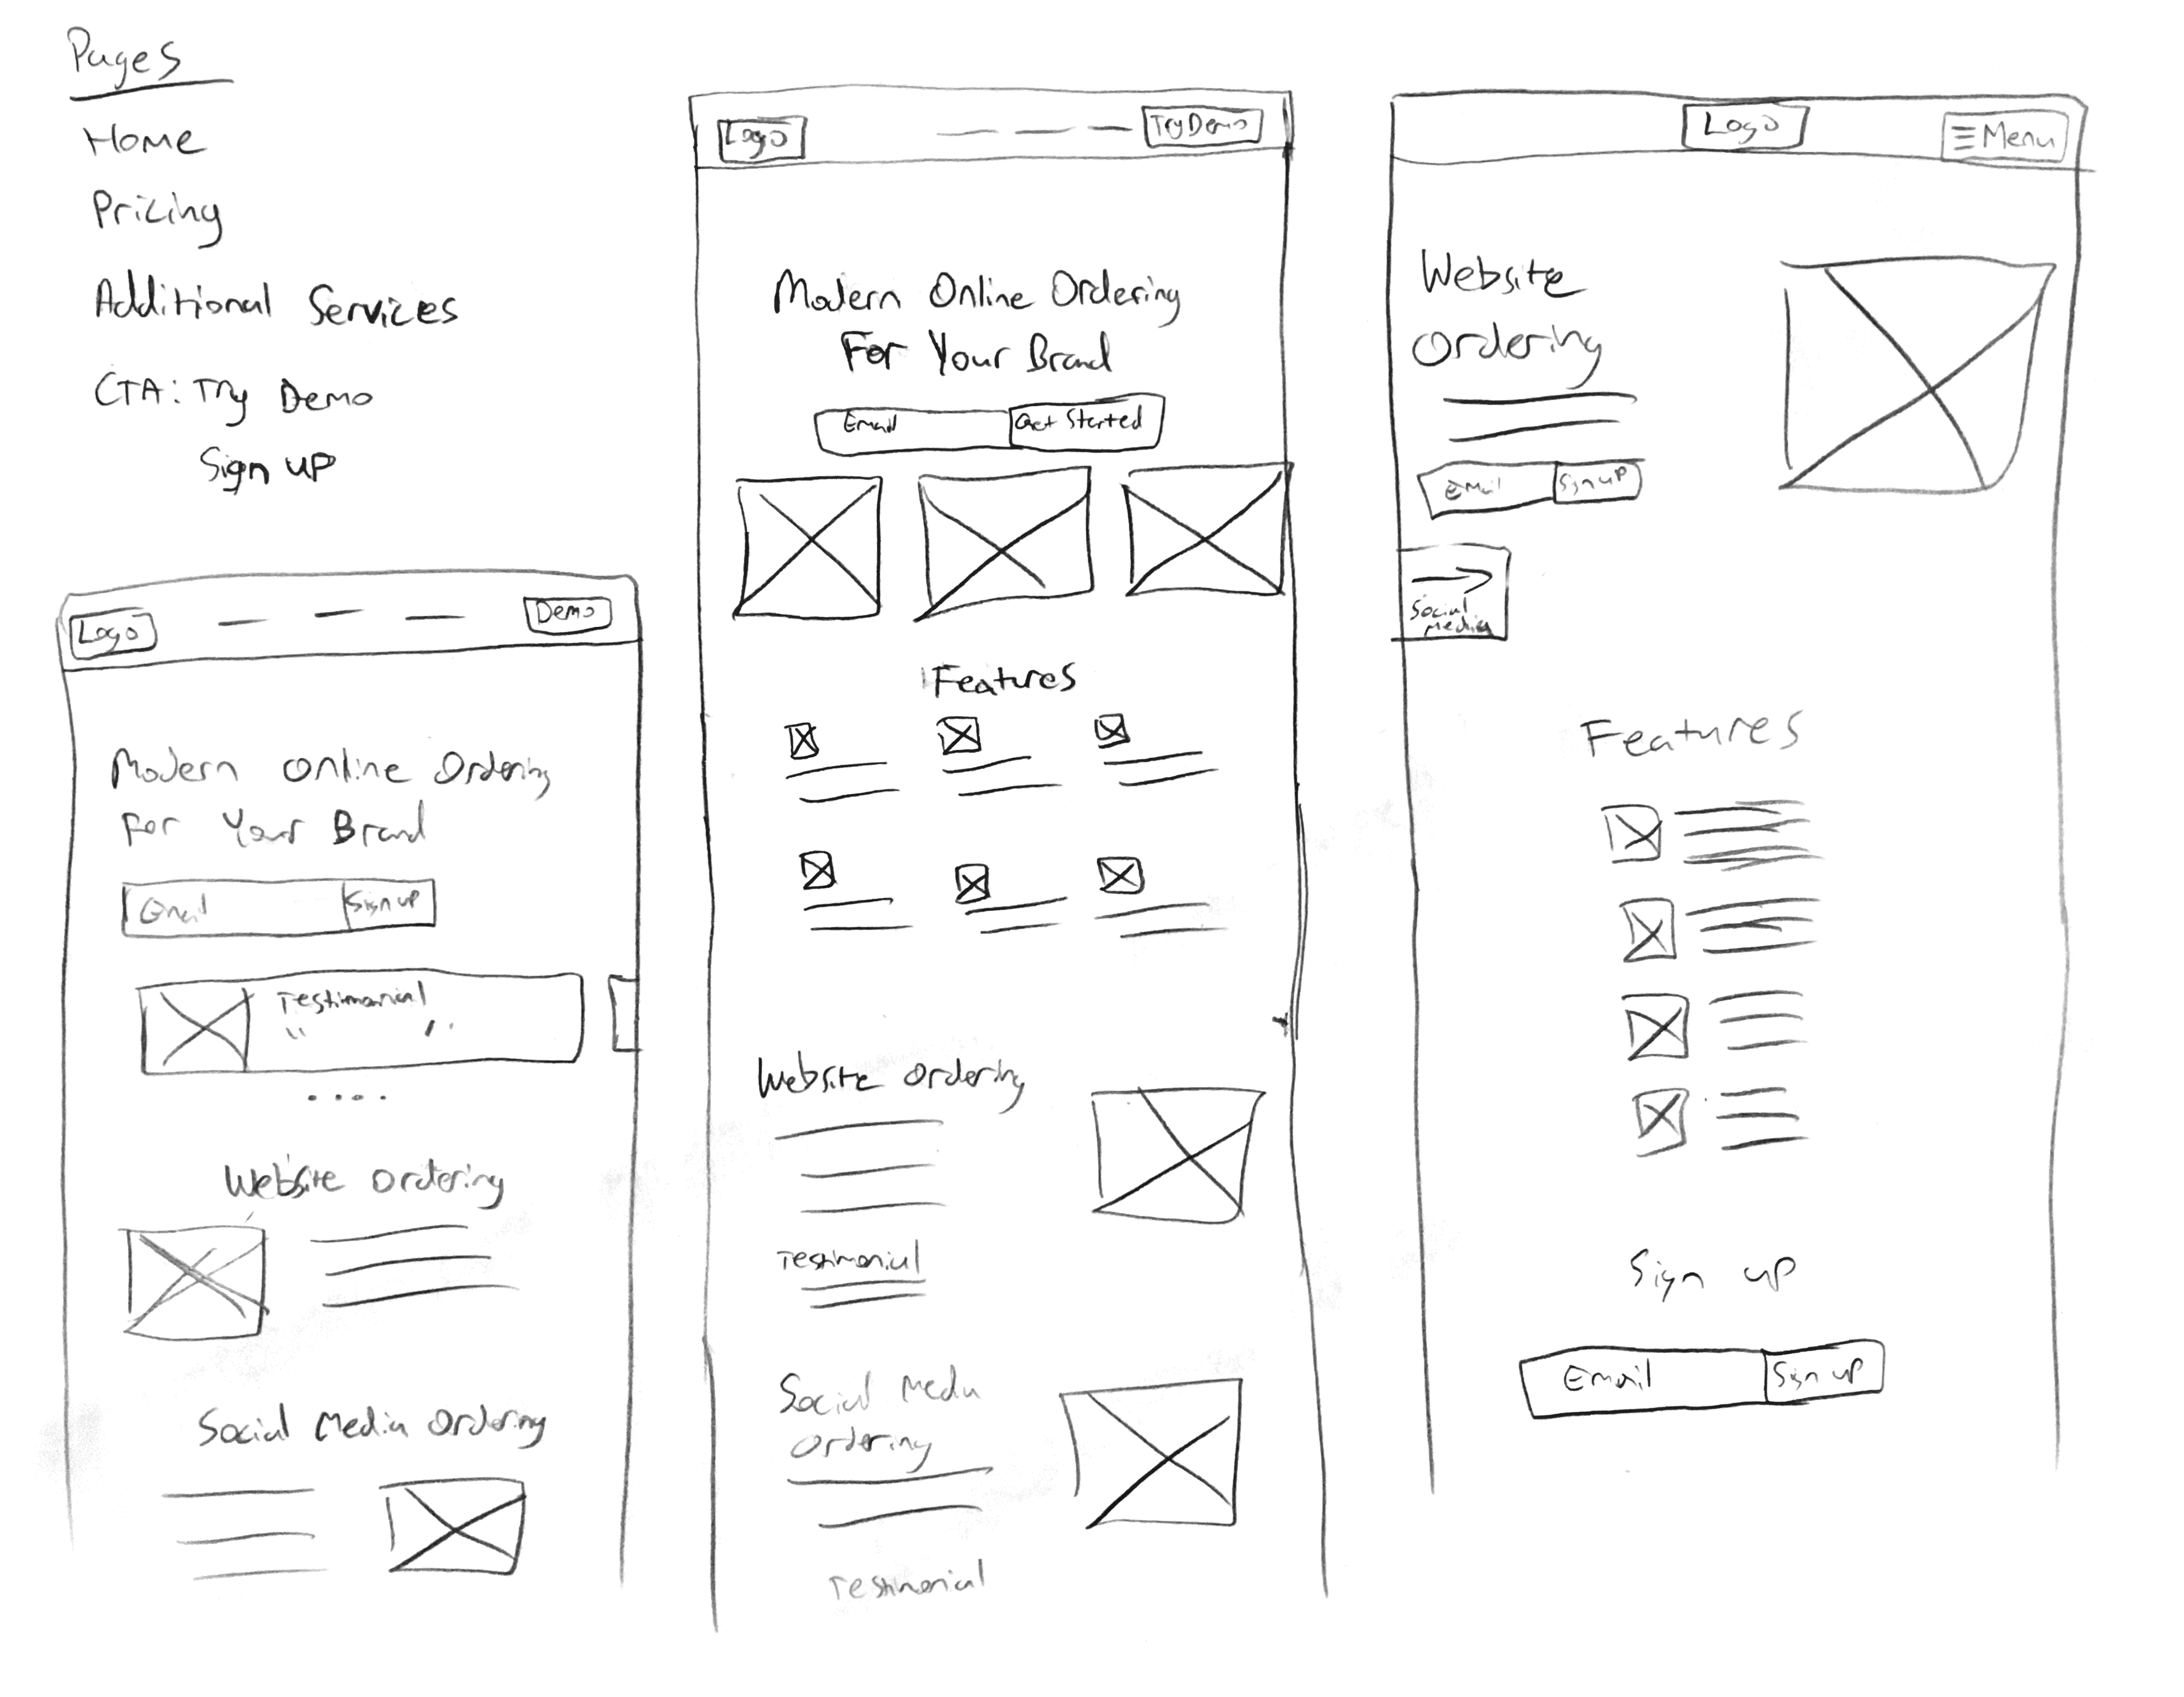 Pages
Home
Pricing
Additional Services
CTA: Try Demo
Sign up
Logo
Demo
Modern Online Ordering
For Your Brand
Email
Sign up
Testimonial
"
"
Website Ordering
Social Media Ordering
Logo
Try Demo
Modern Online Ordering
For Your Brand
Email
Get Started
Features
Website Ordering
Testimonial
Social Media
Ordering
Testimonial
Logo
Menu
Website
Ordering
Email
Sign up
Social
Media
Features
Sign up
Email
Sign up